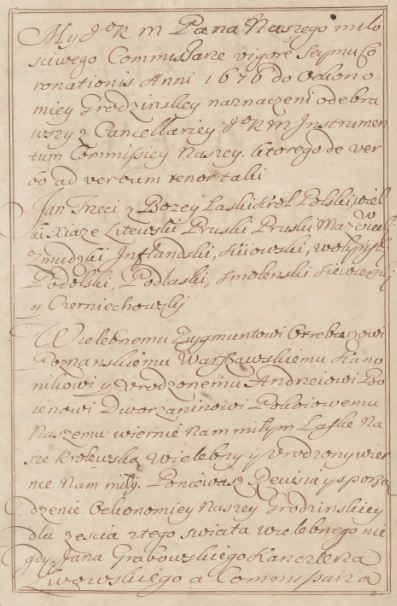 My J K M Pana Naszego miło
sciwego Commissarze vigore Seymu Co
ronationis Anni 1676 do Oekono
miey Grodzinskiey naznaczeni odebra
wszy z Cancellariey J K M Instrumen
tum Commissiey Naszey. ktorego de ver
bo ad verbum tenor taki
Jan Trzeci z Bozey Łaski Krol Polski, wiel
ki Xiąze Litewski, Ruski Pruski Mazowiecki
Zmudzki Inflandski, Kiiowski, Wołynski
Podolski, Podlaski, Smolenski Siewierski
y Czerniechowski
Wielebnemu Zygmuntowi
Poznanskiemu Warszawskiemu Kano
nikowi y Urodzonemu Andrzeiowi
nowi Dworzaninowi Pokoiowemu
Naszemu wiernie Nam miłym Łaskę Na
szę Krolewską Wielebny y Urodzony wier
nie Nam mili. Poniewasz Rewisia y sporzą
dzenie Oekonomiey Naszey Grodzinskiey
dla zescia z tego swiata wielebnego nie
gdy Jana Grabowskiego Kanclerza
a Commissarza